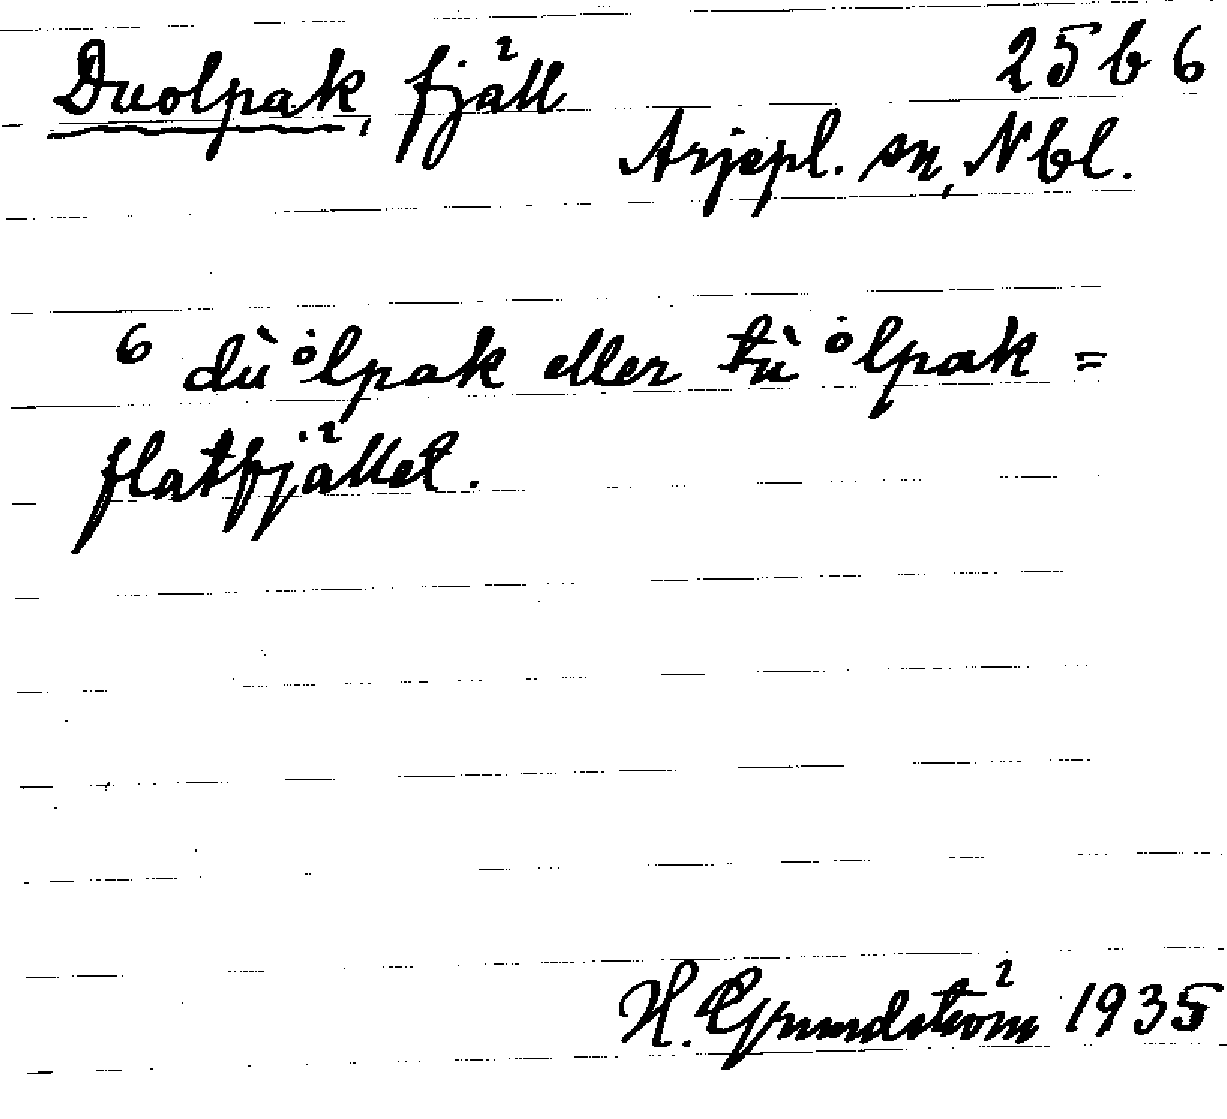 Duolpak, fjäll 25 b 6
Arjepl. sn, Nbl.
6 dùȯlpak eller tùȯlpak =
flatfjället.
H. Grundström 1935